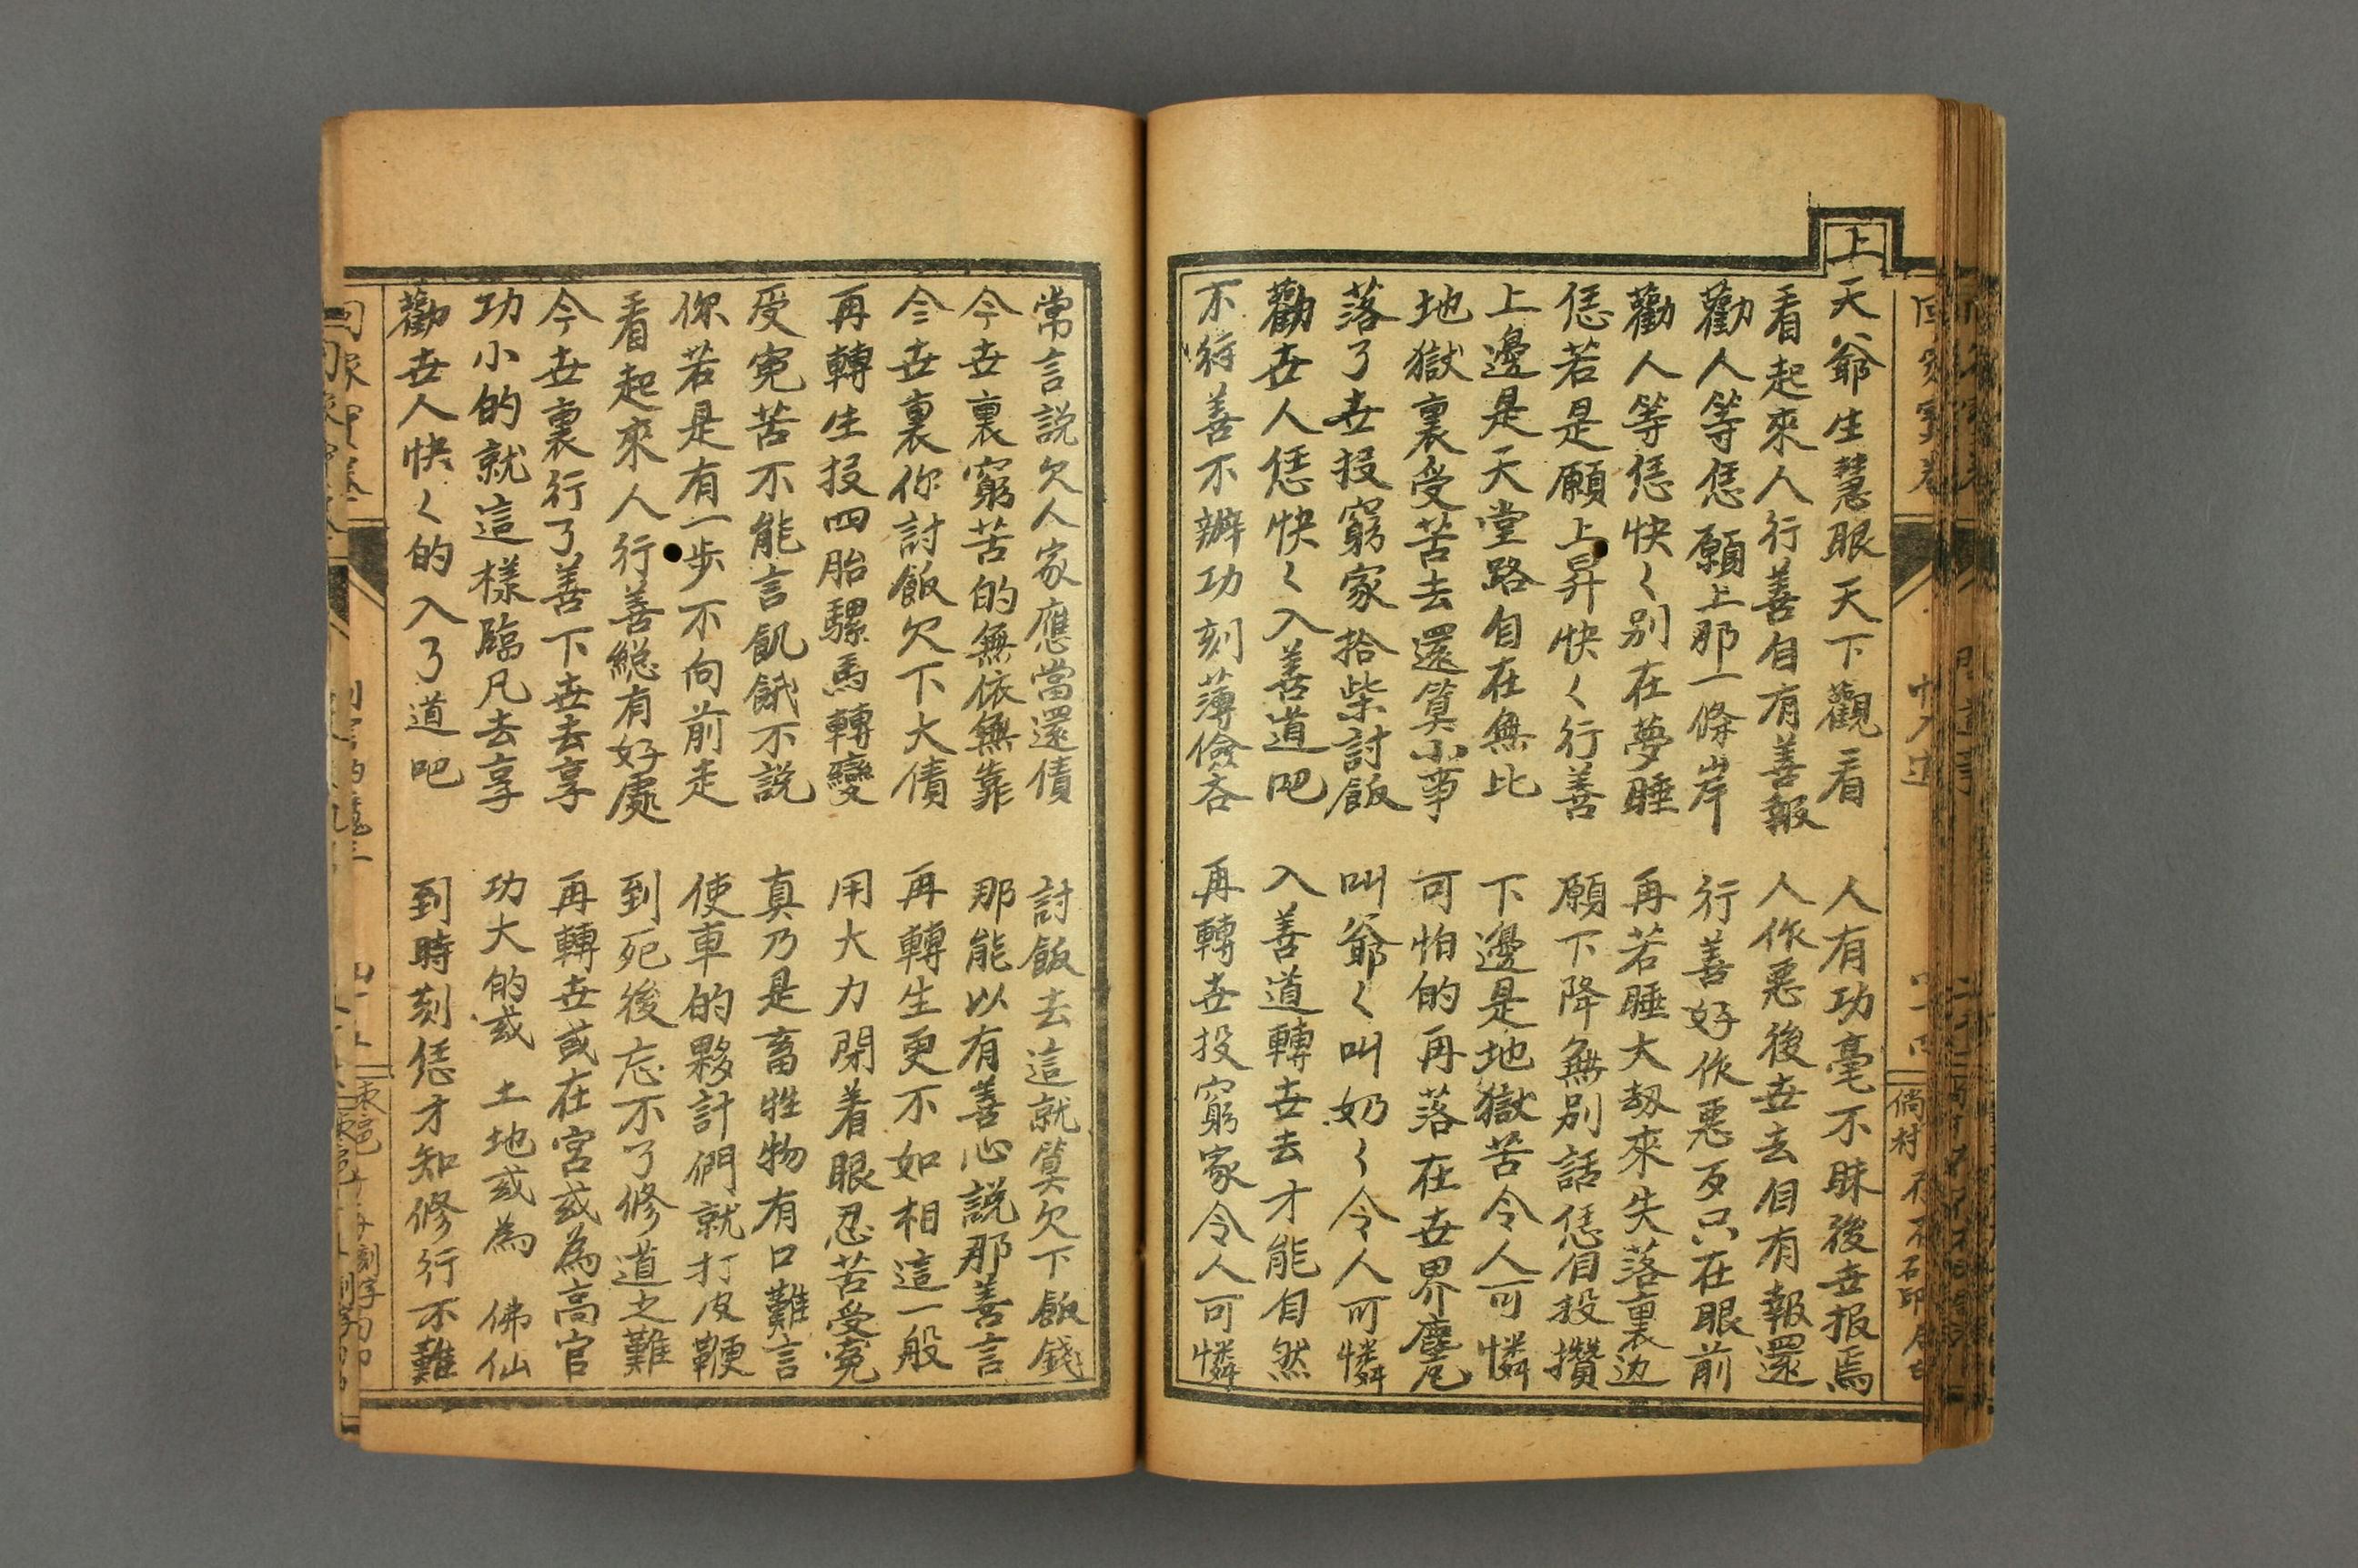 上天爺生慧眼天下觀看　人有功毫不昧後世报焉
看起來人行善自有善報　人作惡後世去自有報還
勸人等恁願上那一條岸　行善好作惡歹只在眼前
勸人等恁快く别在夢睡　再若睡大刼來失落裏边
恁若是願上昇快く行善　願下降無别話恁自投攢
上邊是天堂路自在無比　下邊是地獄苦令人可憐
地獄裏受苦去還算小事　可怕的再落在世界塵凡
落了世投窮家拾柴討飯　叫爺く叫奶く令人可憐
勸世人恁快く入善道吧　入善道轉世去才能自然
不行善不辦功刻薄儉吝　再轉世投窮家令人可憐
常言説欠人家應當還債　討飯去這就算欠下飯錢
今世裏窮苦的無依無靠　那能以有善心説那善言
今世裏你討飯欠下大債　再轉生更不如相這一般
再轉生投四胎騾馬轉變　用大力閉着眼忍苦受寃
受寃苦不能言飢餓不説　真乃是畜牲物有口難言
你若是有一步不向前走　使車的夥計們就打皮鞭
看起來人行善総有好處　到死後忘不了修道之難
今世裏行了善下世去享　再轉世或在宮或為高官
功小的就這樣臨凡去享　功大的或土地或為佛仙
勸世人快く的入了道吧　到時刻恁才知修行不難